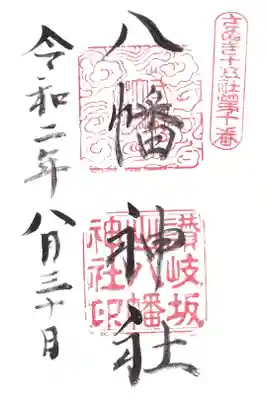 さぬき十五社第十五番
八幡
神社
讃岐坂
出八幡
神社印
令和二年
八月三十日